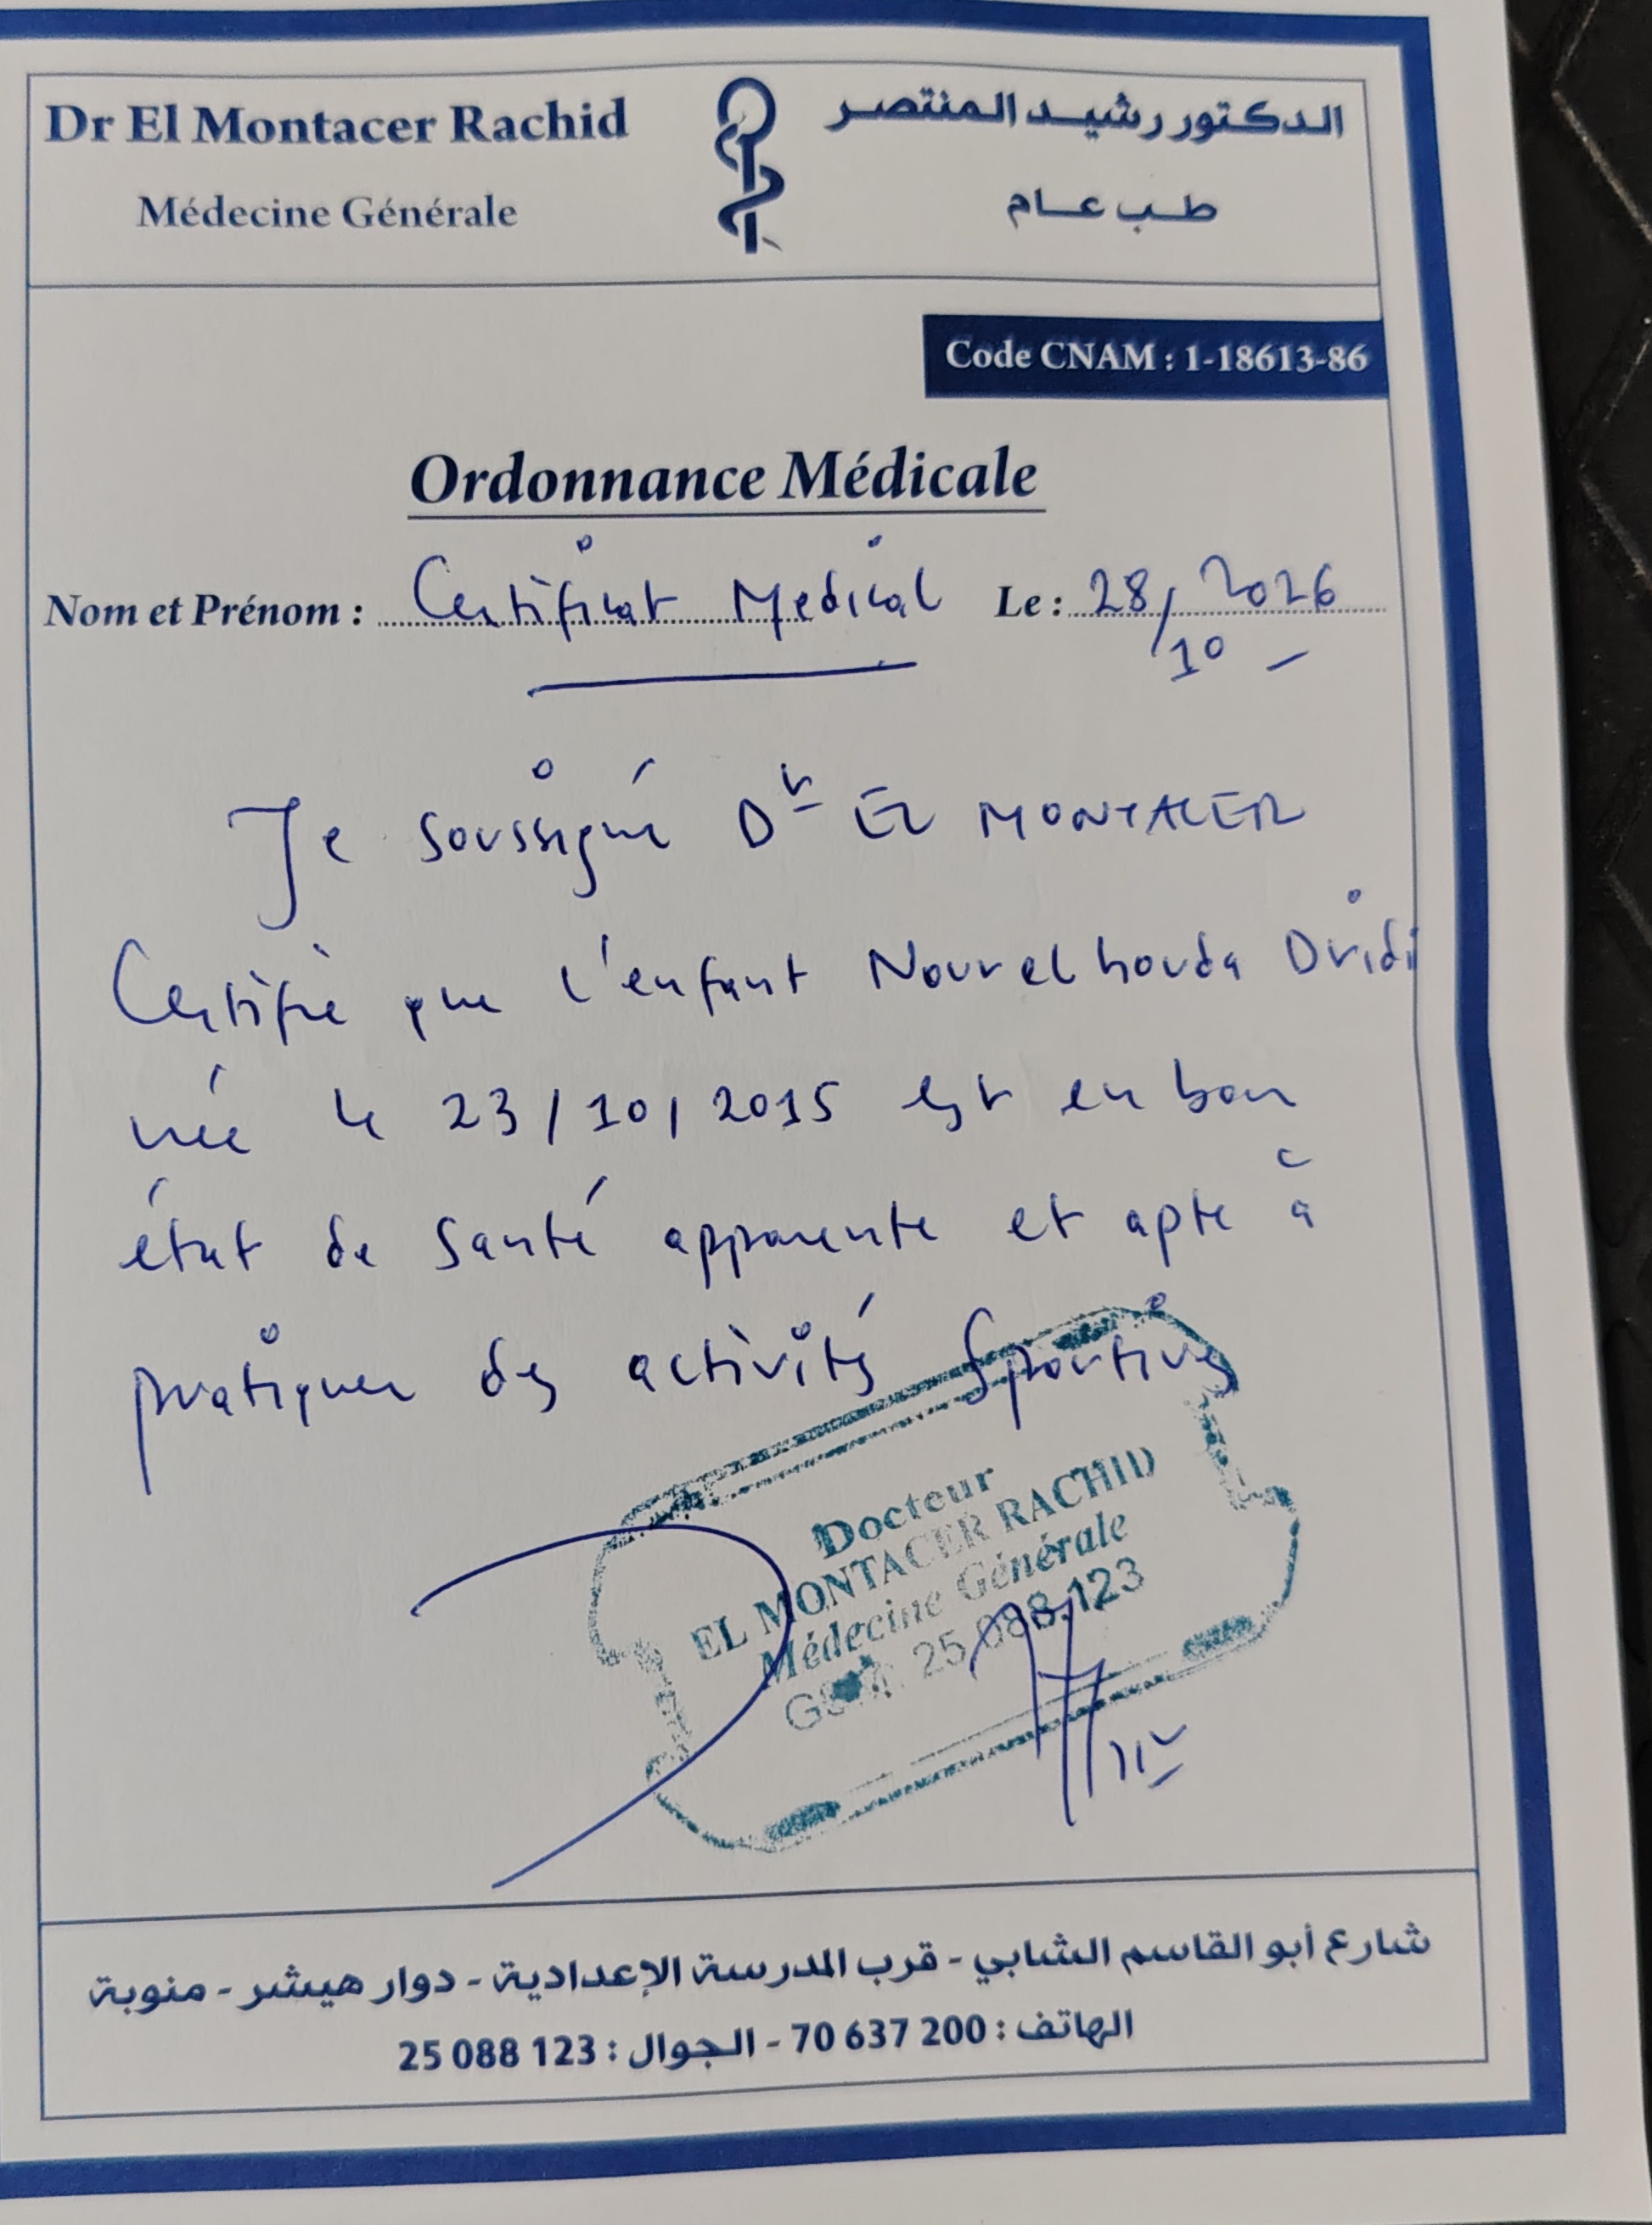 Dr El Montacer Rachid
Médecine Générale
الدكتور رشيد المنتصر
طب عام
Code CNAM : 1-18613-86
Ordonnance Médicale
Nom et Prénom : Certificat Medical Le : 28/10 2026
Je soussigné Dr EL MONTACER
Certifie que l'enfant Nourelhouda Dridi
née le 23/10/2015 est en bon
état de Santé apparente et apte à
pratiquer des activités Sportives
Docteur
EL MONTACER RACHID
Médecine Générale
GSM: 25 088 123
شارع أبو القاسم الشابي - قرب المدرسة الإعدادية - دوار هيشر - منوبة
الهاتف : 200 637 70 - الجوال : 123 088 25